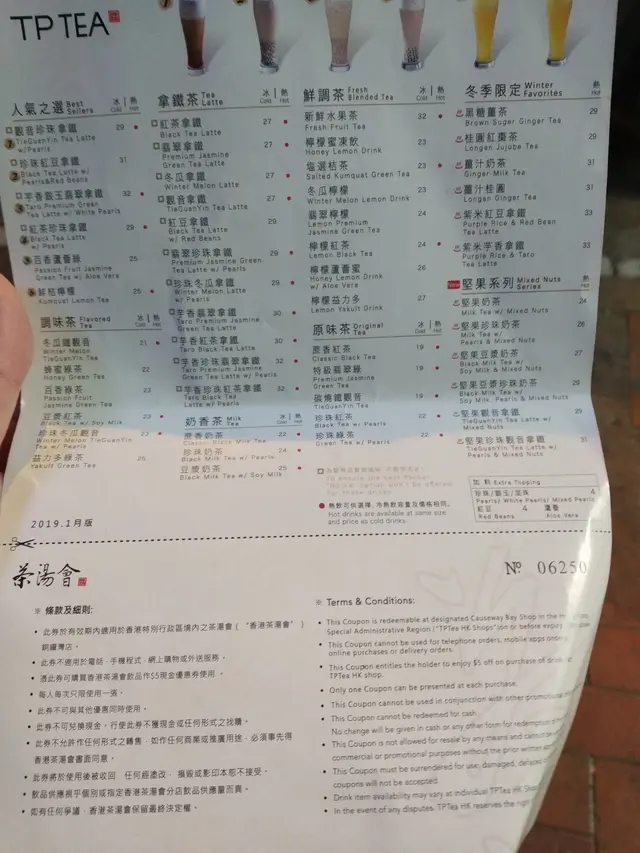 TP TEA
人氣之選 Best Sellers 冰 Cold 熱 Hot
觀音珍珠拿鐵 29
TieGuanYin Tea Latte
w/Pearls
珍珠紅豆拿鐵 31
Black Tea Latte w/
Pearls&Red Beans
芋香銀玉翡翠拿鐵 32
Taro Premium Green
Tea Latte w/ White Pearls
紅茶珍珠拿鐵 29
Black Tea Latte
w/ Pearls
百香蘆薈綠 25
Passion Fruit Jasmine
Green Tea w/ Aloe Vera
鮮桔檸檬 25
Kumquat Lemon Tea
調味茶 Flavored Tea 冰 Cold 熱 Hot
冬瓜鐵觀音 21
Winter Melon
TieGuanYin Tea
蜂蜜綠茶 22
Honey Green Tea
百香綠茶 23
Passion Fruit
Jasmine Green Tea
豆漿紅茶 23
Black Tea w/ Soy Milk
珍珠冬瓜觀音 23
Winter Melon TieGuanYin
Tea w/ Pearls
益力多綠茶 25
Yakult Green Tea
2019.1月版
拿鐵茶 Tea Latte 冰 Cold 熱 Hot
紅茶拿鐵 27
Black Tea Latte
翡翠拿鐵 27
Premium Jasmine
Green Tea Latte
冬瓜拿鐵 27
Winter Melon Latte
觀音拿鐵 27
TieGuanYin Tea Latte
紅豆拿鐵 29
Black Tea Latte
w/ Red Beans
翡翠珍珠拿鐵 29
Premium Jasmine Green
Tea Latte w/ Pearls
珍珠冬瓜拿鐵 29
Winter Melon Latte
w/ Pearls
芋香翡翠拿鐵 30
Taro Premium Jasmine
Green Tea Latte
芋香紅茶拿鐵 30
Taro Black Tea Latte
芋香珍珠翡翠拿鐵 32
Taro Premium Jasmine Green
Tea Latte w/ Pearls
芋香珍珠紅茶拿鐵 32
Taro Black Tea
Latte w/ Pearls
奶香茶 Milk Tea 冰 Cold 熱 Hot
蔗香奶茶 22
Classic Black Milk Tea
珍珠奶茶 24
Black Milk Tea w/ Pearls
豆漿奶茶 25
Black Milk Tea w/ Soy Milk
鮮調茶 Fresh Blended Tea 冰 Cold 熱 Hot
新鮮水果茶 32
Fresh Fruit Tea
檸檬蜜凍飲 23
Honey Lemon Drink
塩選桔茶 23
Salted Kumquat Green Tea
冬瓜檸檬 23
Winter Melon Lemon Drink
翡翠檸檬 24
Lemon Premium
Jasmine Green Tea
檸檬紅茶 24
Lemon Black Tea
檸檬蘆薈蜜 26
Honey Lemon Drink
w/ Aloe Vera
檸檬益力多 27
Lemon Yakult Drink
原味茶 Original Tea 冰 Cold 熱 Hot
蔗香紅茶 19
Classic Black Tea
特級翡翠綠 19
Premium Jasmine
Green Tea
碳燒鐵觀音 19
TieGuanYin Tea
珍珠紅茶 22
Black Tea w/ Pearls
珍珠綠茶 22
Green Tea w/ Pearls
To ensure the best flavour
熱飲可供選擇,冷熱飲容量及價格相同。
Hot drinks are available at same size
and price as cold drinks.
冬季限定 Winter Favorites 熱 Hot
黑糖薑茶 29
Brown Sugar Ginger Tea
桂圓紅棗茶 29
Longan Jujube Tea
薑汁奶茶 31
Ginger Milk Tea
薑汁桂圓 31
Longan Ginger Tea
紫米紅豆拿鐵 33
Purple Rice & Red Bean
Tea Latte
紫米芋香拿鐵 33
Purple Rice & Taro
Tea Latte
New 堅果系列 Mixed Nuts Series 熱 Hot
堅果奶茶 24
Milk Tea w/ Mixed Nuts
堅果珍珠奶茶 26
Milk Tea w/
Pearls & Mixed Nuts
堅果豆漿奶茶 27
Black Milk Tea w/
Soy Milk & Mixed Nuts
堅果豆漿珍珠奶茶 29
Black Milk Tea w/
Soy Milk, Pearls & Mixed Nuts
堅果觀音拿鐵 29
TieGuanYin Tea Latte w/
Mixed Nuts
堅果珍珠觀音拿鐵 31
TieGuanYin Tea Latte w/
Pearls & Mixed Nuts
加料 Extra Topping
珍珠/銀玉/混珠 4
Pearls/ White Pearls/ Mixed Pearls
紅豆 4 蘆薈
Red Beans Aloe Vera
茶湯會
Nº 06250
※ 條款及細則:
• 此券於有效期內適用於香港特別行政區境內之茶湯會(“香港茶湯會”)
銅鑼灣店。
• 此券不適用於電話、手機程式、網上購物或外送服務。
• 憑此券可購買香港茶湯會飲品作$5現金優惠券使用。
• 每人每次只限使用一張。
• 此券不可與其他優惠同時使用。
• 此券不可兌換現金。行使此券不獲現金或任何形式之找贖。
• 此券不允許作任何形式之轉售,如作任何商業或推廣用途,必須事先得
香港茶湯會書面同意。
• 此券將於使用後被收回,任何經塗改、損毀或影印本恕不接受。
• 飲品供應視乎個別或指定香港茶湯會分店飲品供應量而異。
• 如有任何爭議,香港茶湯會保留最終決定權。
※ Terms & Conditions:
• This Coupon is redeemable at designated Causeway Bay Shop in the
Special Administrative Region ("TPTea HK Shops")on or before expiry
• This Coupon cannot be used for telephone orders, mobile apps
online purchases or delivery orders.
• This Coupon entitles the holder to enjoy $5 off on purchase of
TPTea HK shop.
• Only one Coupon can be presented at each purchase.
• This Coupon cannot be used in conjunction with other
• This Coupon cannot be redeemed for cash.
No change will be given in cash or any other form for redemption
• This Coupon is not allowed for resale by any means and cannot
commercial or promotional purposes without the prior written
• This Coupon must be surrendered for use, damaged, defaced
coupons will not be accepted.
• Drink item availability may vary at individual TPTea HK
• In the event of any disputes, TPTea HK reserves the